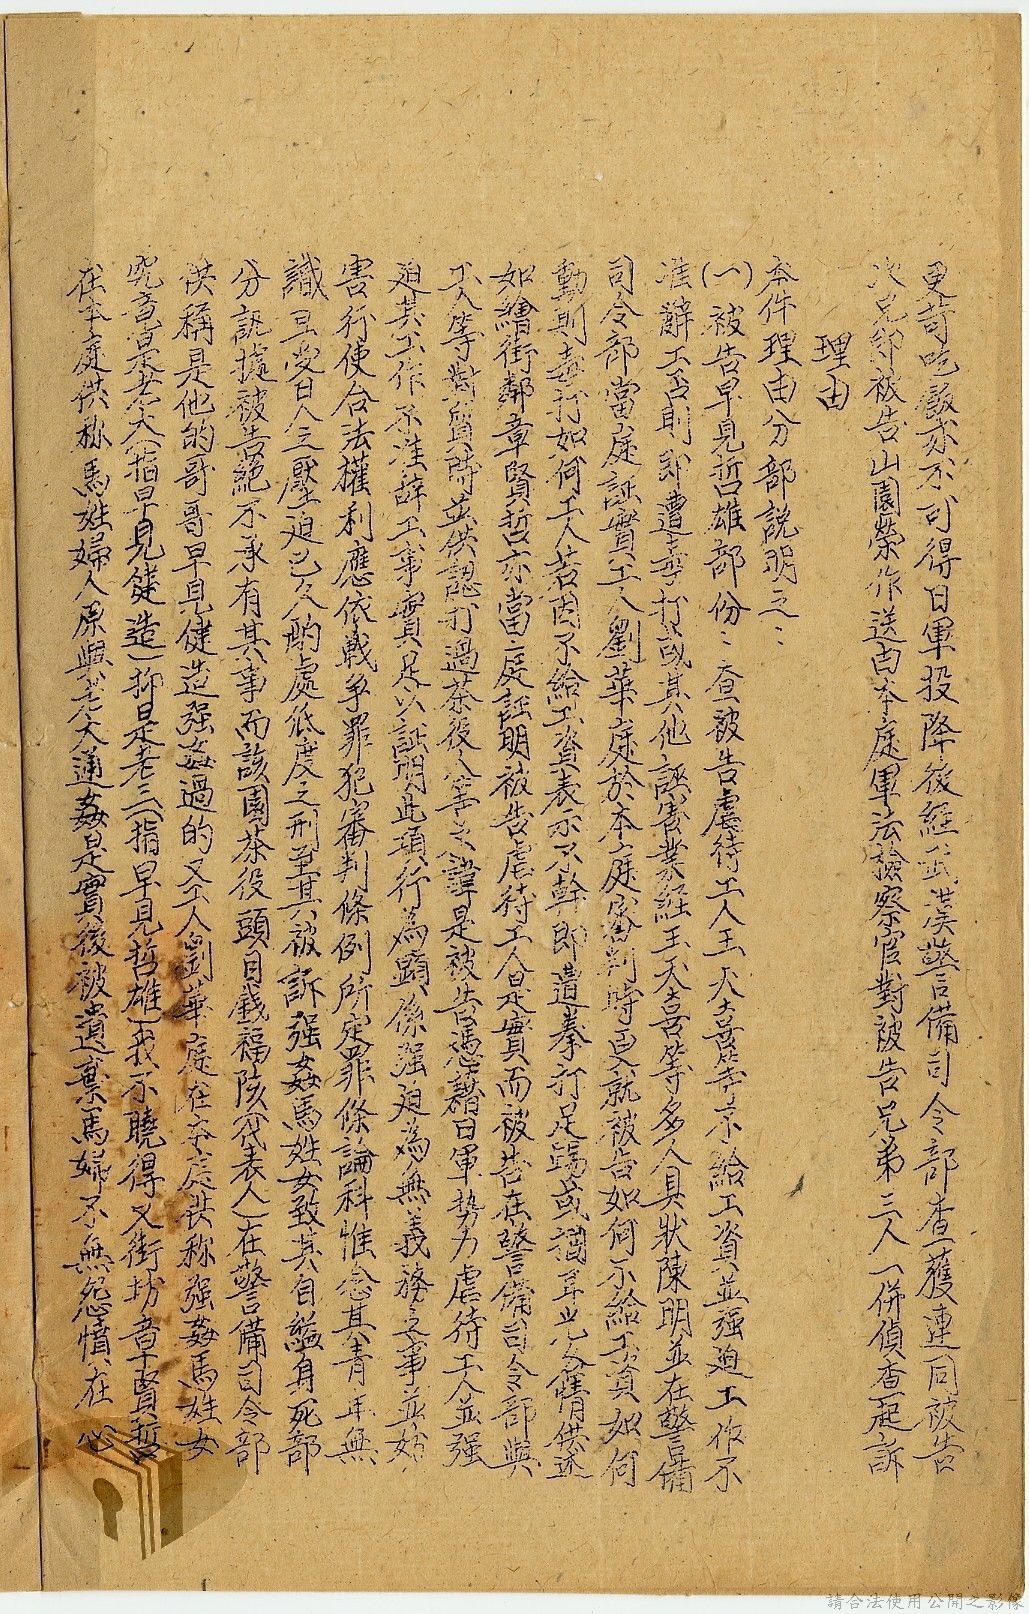 更苛吃飯亦不可得日軍投降後經武漢警備司令部查獲連同被告
次兄即被告山園榮作送由本庭軍法檢察官對被告兄弟三人一併偵查起訴
理由
本件理由分部說明之：
(一)被告早見哲雄部份：查被告虐待工人王大喜等不給工資並强迫工作不
准辭工否則即遭毒打或其他誣害業經王大喜等多人具狀陳明並在警備
司令部當庭証實工人劉華庭於本庭審判時更就被告如何不給工資如何
動則毒打如何工人若因不給工資表示不幹即遭拳打足踢或摑耳光各情供述
如繪街鄰章賢哲亦當庭証明被告虐待工人是實而被告在警備司令部與
工人等對質時並供認打過茶役八等不諱是被告憑藉日軍勢力虐待工人並强
迫其工作不准辭工事實足以証明此項行為顯係强迫為無義務之事並妨
害行使合法權利應依戰爭罪犯審判條例所定罪條論科惟念其青年無
識且受日人之壓迫已久酌處低度之刑至其被訴强姦馬姓女致其自縊身死部
分訊據被告絕不承有其事而該園茶役頭目錢福陔(代表人)在警備司令部
供稱是他的哥哥早見健造强姦過的又工人劉華庭在本庭供称强姦馬姓女
究竟是老大(指早見健造)抑是老三(指早見哲雄)我不曉得又街坊章賢哲
在本庭供称馬姓婦人原與老大通姦是實後被遺棄馬婦不無怨憤在心
請合法使用公開之影像